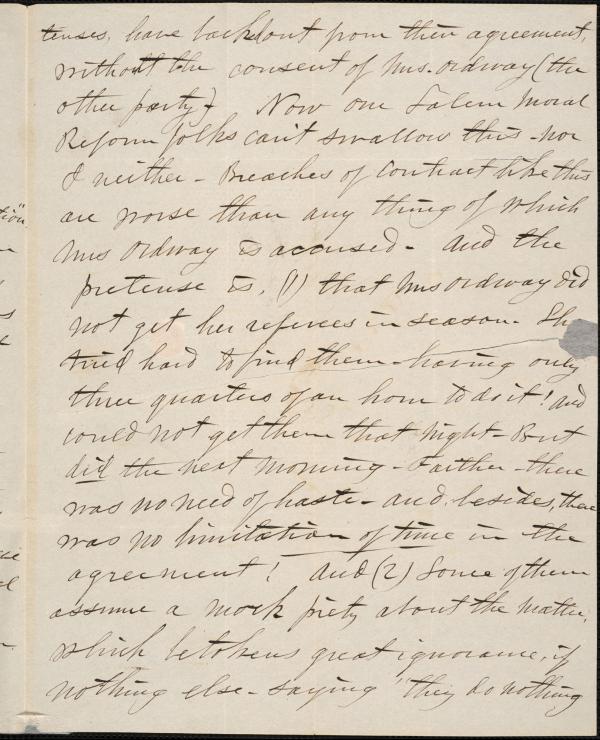 tenses, have backed out from their agreement,
without the consent of Mrs. Ordway (the
other party). Now our Salem Moral
Reform folks can't swallow this - nor
I neither - Breaches of contract like this
are worse than any thing of which
Mrs Ordway is accused - And the
pretense is, (1) that Mrs Ordway did
not get her referees in season - She
tried hard to find them - having only
three quarters of an hour to do it! and
could not get them that night - But
did the next morning - Farther - there
was no need of haste - and, besides, there
was no limitation of time in the
agreement! And (2) Some of them
assume a mock piety about the matter,
which betokens great ignorance, if
nothing else - saying "they do nothing
tion"